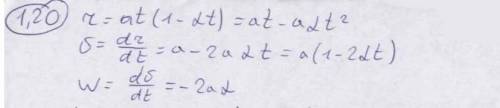 1,20 r = at(1-αt) = at - aαt²
υ = dr/dt = a - 2aαt = a(1-2αt)
w = dυ/dt = -2aα